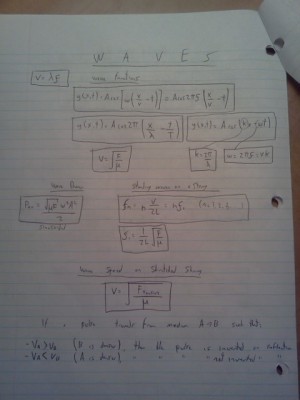 WAVES
v = λf
Wave Functions
y(x,t) = A cos [ω(x/v - t)] = A cos 2πf (x/v - t)
y(x,t) = A cos 2π (x/λ - t/T) y(x,t) = A cos (kx - ωt)
v = √(F/μ) k = 2π/λ ω = 2πf = vk
Wave Power Standing waves on a string
√(μF) ω²A² / 2 fn = n v/2L = nf₁ (n = 1, 2, 3
f₁ = 1/2L √(F/μ)
Wave Speed on Stretched String
v = √(F/μ)
If a pulse travels from medium A→B such that:
- VA > VB (B is denser), then the pulse is inverted on reflection
- VA < VB (A is denser) " " " " not inverted " "